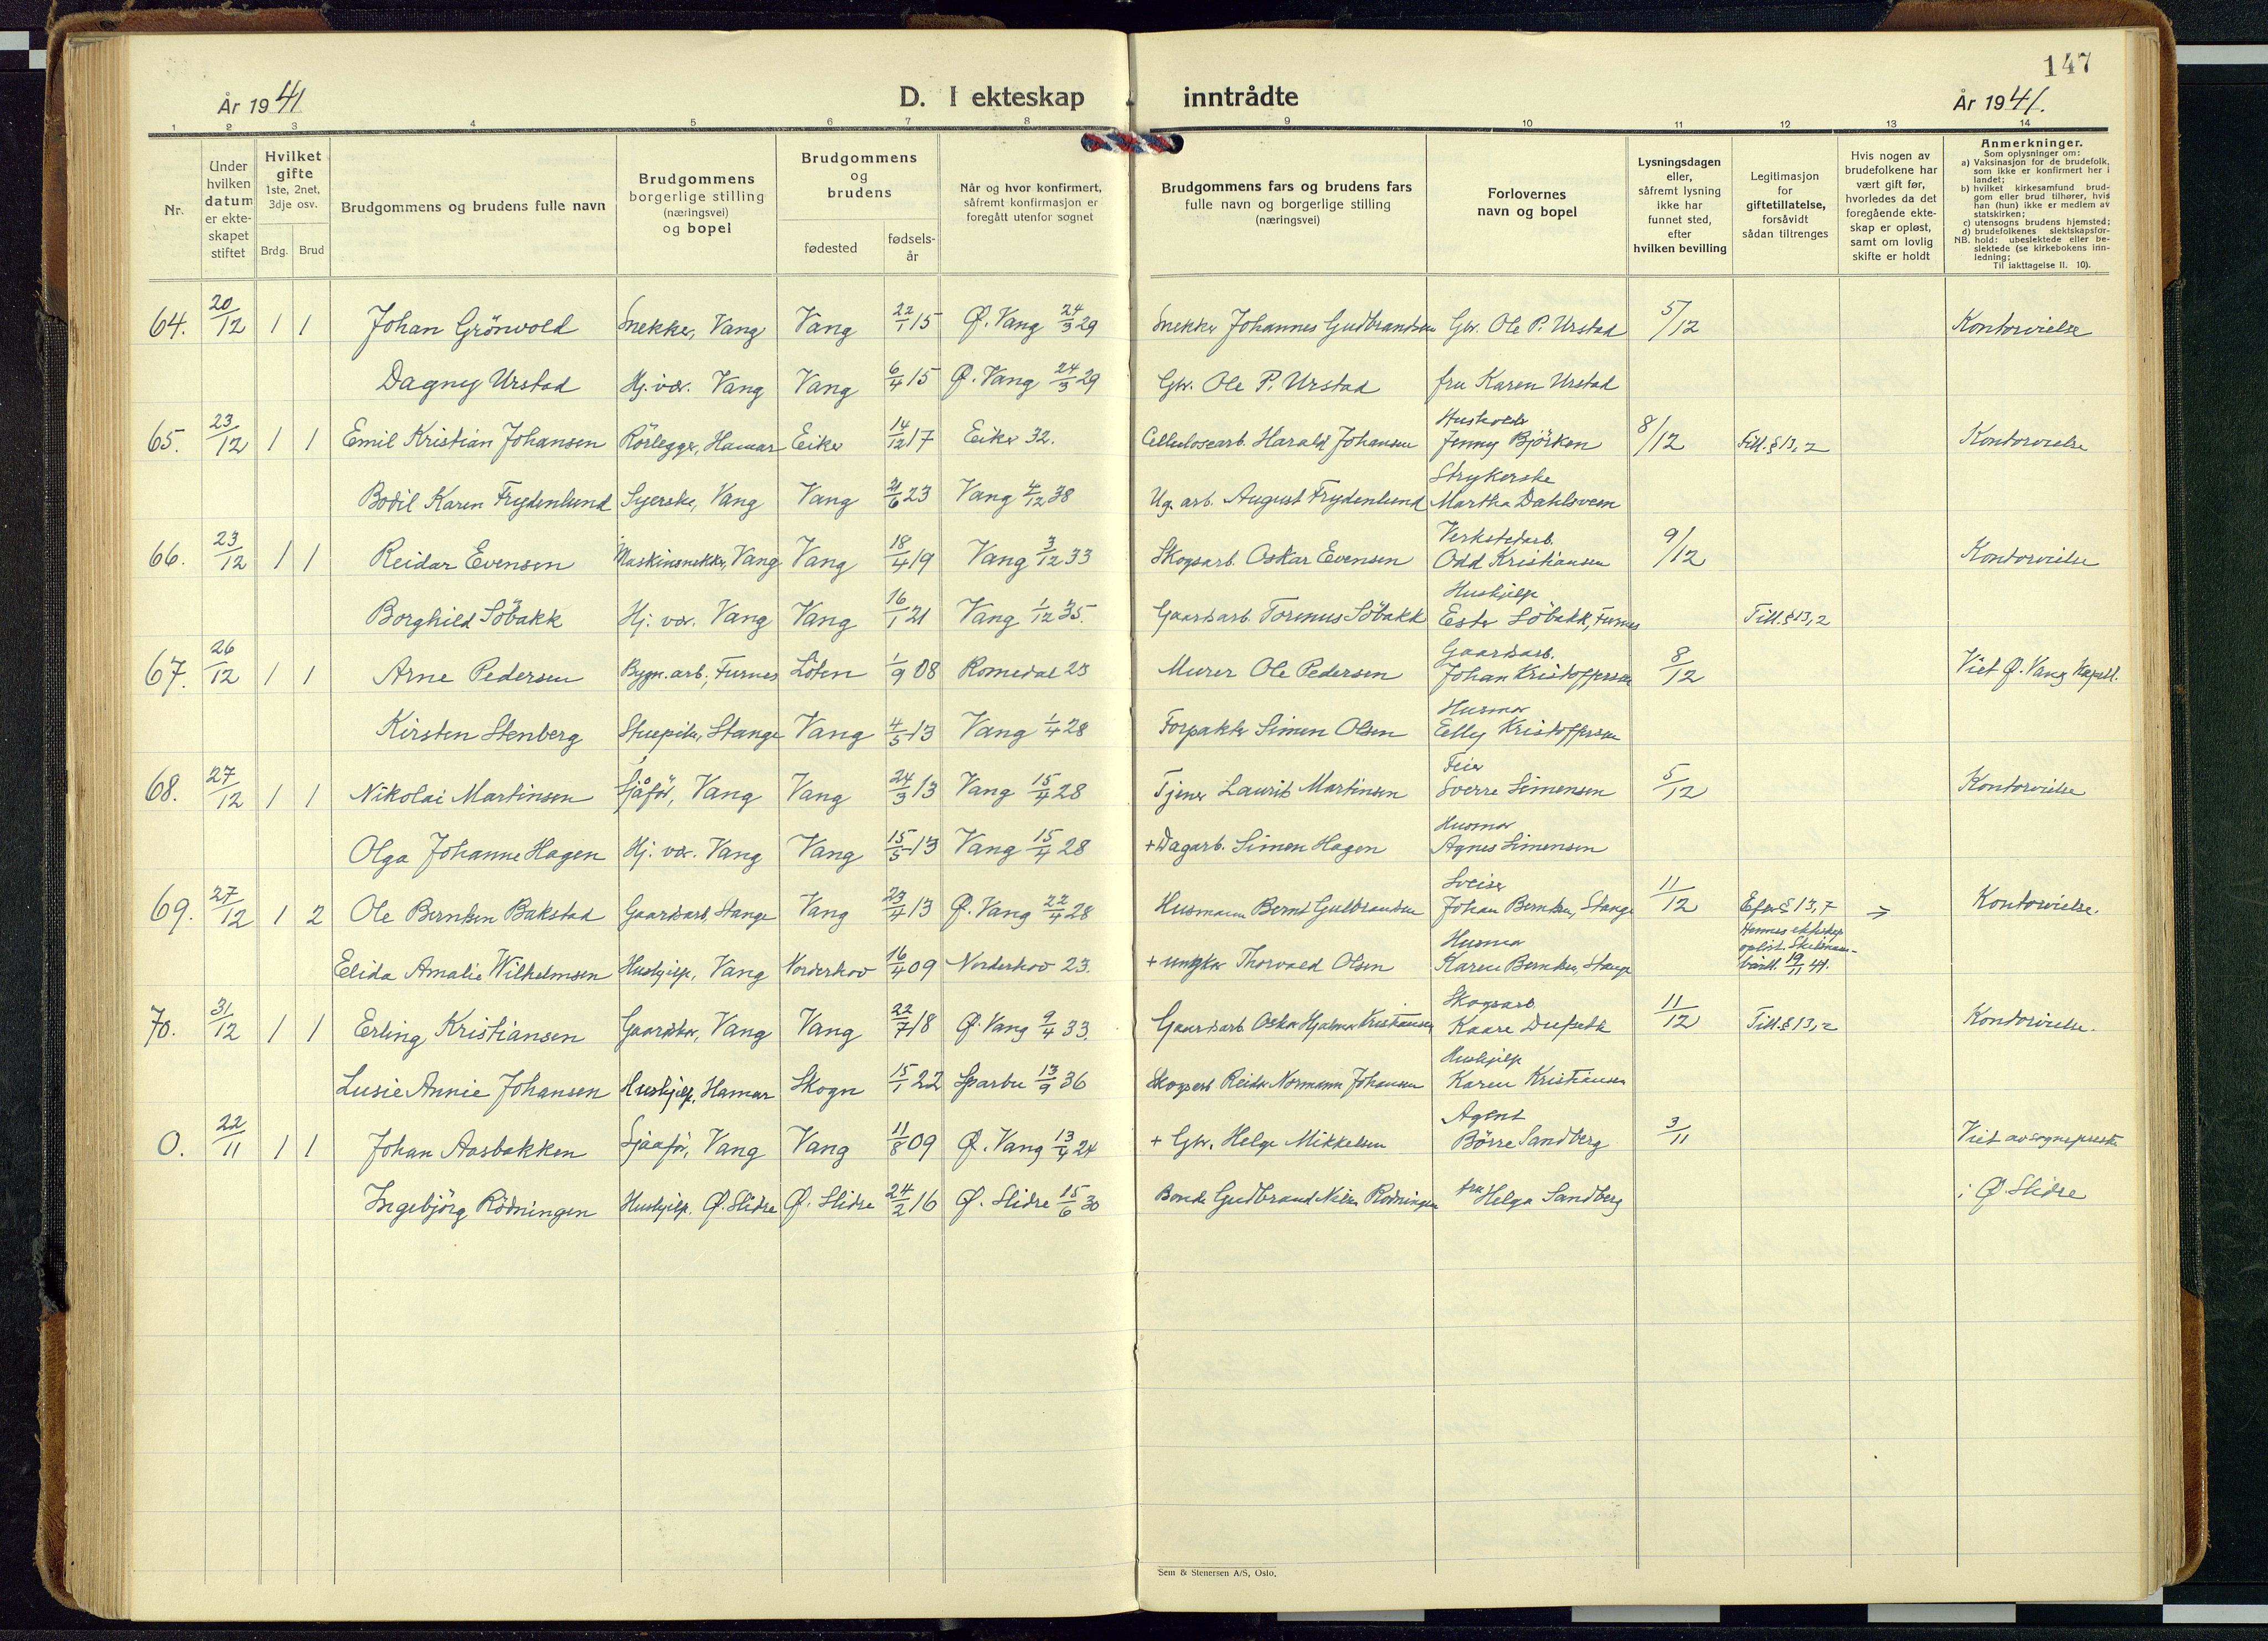 147
År 1941
D. I ekteskap inntrådte
År 1941.
1 2 3 4 5 6 7 8 9 10 11 12 13 14
Nr.
Under hvilken datum er ekteskapet stiftet
Hvilket gifte 1ste, 2net, 3dje osv.
Brdg. Brud
Brudgommens og brudens fulle navn
Brudgommens borgerlige stilling (næringsvei) og bopel
Brudgommens og brudens
fødested
fødselsår
Når og hvor konfirmert, såfremt konfirmasjon er foregått utenfor sognet
Brudgommens fars og brudens fars fulle navn og borgerlige stilling (næringsvei)
Forlovernes navn og bopel
Lysningsdagen eller, såfremt lysning ikke har funnet sted, efter hvilken bevilling
Legitimasjon for giftetillatelse, forsåvidt sådan tiltrenges
Hvis nogen av brudefolkene har vært gift før, hvorledes da det foregående ekteskap er opløst, samt om lovlig skifte er holdt
Anmerkninger.
Som oplysninger om:
a) Vaksinasjon for de brudefolk, som ikke er konfirmert her i landet;
b) hvilket kirkesamfund brudgom eller brud tilhører, hvis han (hun) ikke er medlem av statskirken;
c) utensogns brudens hjemsted;
d) brudefolkenes slektskapsforhold: ubeslektede eller beslektede (se kirkebokens innledning;
NB. Til iakttagelse II. 10).
64. 20/12 1 1 Johan Grönvold Snekker, Vang Vang 22/1 15 Ø. Vang 24/3 29 Snekker Johannes Gudbrandsen Gbr. Ole P. Urstad 5/12 Kontorvielse
Dagny Urstad Hj. vær. Vang Vang 6/4 15 Ø. Vang 24/3 29 Gbr. Ole P. Urstad fru Karen Urstad
65. 23/12 1 1 Emil Kristian Johansen Rörlegger, Hamar Eiker 14/12 17 Eiker 32. Cellulosearb. Harald Johansen Jenny Björken 8/12 Till. § 13, 2 Kontorvielse
Bodil Karen Frydenlund Syerske, Vang Vang 21/6 23 Vang 4/12 38 Ug. arb. August Frydenlund Strykerske Martha Dahlsveen
66. 23/12 1 1 Reidar Evensen Maskinsnekker, Vang Vang 18/4 19 Vang 3/12 33 Skogsarb. Oskar Evensen Verkstedarb. Odd Kristiansen 9/12 Kontorvielse
Borghild Söbakk Hj. vær. Vang Vang 16/1 21 Vang 1/12 35. Gaardsarb. Tormus Söbakk Hushjelp Ester Söbakk, Furnes Till. § 13, 2
67. 26/12 1 1 Arne Pedersen Bygn. arb., Furnes Löten 1/9 08 Romedal 23 Murer Ole Pedersen Gaardsarb. Johan Kristoffersen 8/12 Viet Ø. Vang Kapell.
Kirsten Stenberg Stuepike, Stange Vang 4/5 13 Vang 1/4 28 Forpakter Simen Olsen Husmor Elly Kristoffersen
68. 27/12 1 1 Nikolai Martinsen Sjåför, Vang Vang 24/3 13 Vang 15/4 28 Tjener Laurits Martinsen Feier Sverre Simensen 5/12 Kontorvielse
Olga Johanne Hagen Hj. vær. Vang Vang 15/5 13 Vang 15/4 28 + Dagarb. Simen Hagen Husmor Agnes Simensen
69. 27/12 1 2 Ole Berntsen Bakstad Gaardsarb, Stange Vang 23/4 13 Ø. Vang 22/4 28 Husmann Bernt Gulbrandsen Sveiser Johan Berntsen, Stange 11/12 Efter § 13, 7 Kontorvielse.
Elida Amalie Wilhelmsen Hushjelp, Vang Norderhov 16/4 09 Norderhov 23. + Thorvald Olsen Husmor Karen Berntsen, Stange Hennes ekteskap opløst. 19/11 41.
70. 31/12 1 1 Erling Kristiansen Gaardsbr, Vang Vang 22/7 18 Ø. Vang 9/4 33. Gaardsarb Oskar Hjalmar Kristiansen Skogsarb Kaare Dufseth 11/12 Till. § 13, 2 Kontorvielse.
Lusie Annie Johansen Hushjelp, Hamar Skogn 15/1 22 Sparbu 13/9 36 Skogsarb Reidar Normann Johansen Hushjelp Karen Kristiansen
0. 22/11 1 1 Johan Aasbakken Sjaaför, Vang Vang 11/8 09 Ø. Vang 13/4 24 + Gbr. Helge Mikkelsen Agent Börre Sandberg 3/11 Viet av sognepresten
Ingebjörg Rödningen Hushjelp. Ø. Slidre Ø. Slidre 24/2 16 Ø. Slidre 15/6 30 Bonde Gudbrand Nilsen Rödningen fru Helga Sandberg i Ø. Slidre
Sem & Stenersen A/S, Oslo.